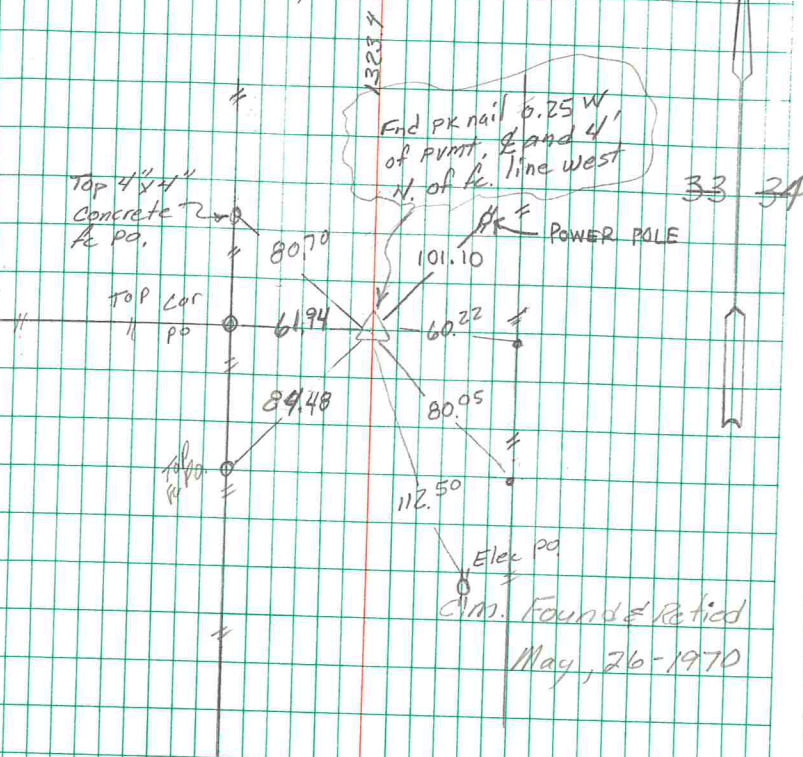 1323.4
Fnd PK nail 0.25 W
of pvmt. ℄ and 4'
N. of fc. line west
33 34
Top 4"x4"
Concrete
fc po.
80.70
101.10
POWER POLE
TOP Cor
po
61.94
60.22
84.48
80.05
Top
po.
112.50
Elec po.
C.M. Found & Retied
May, 26-1970